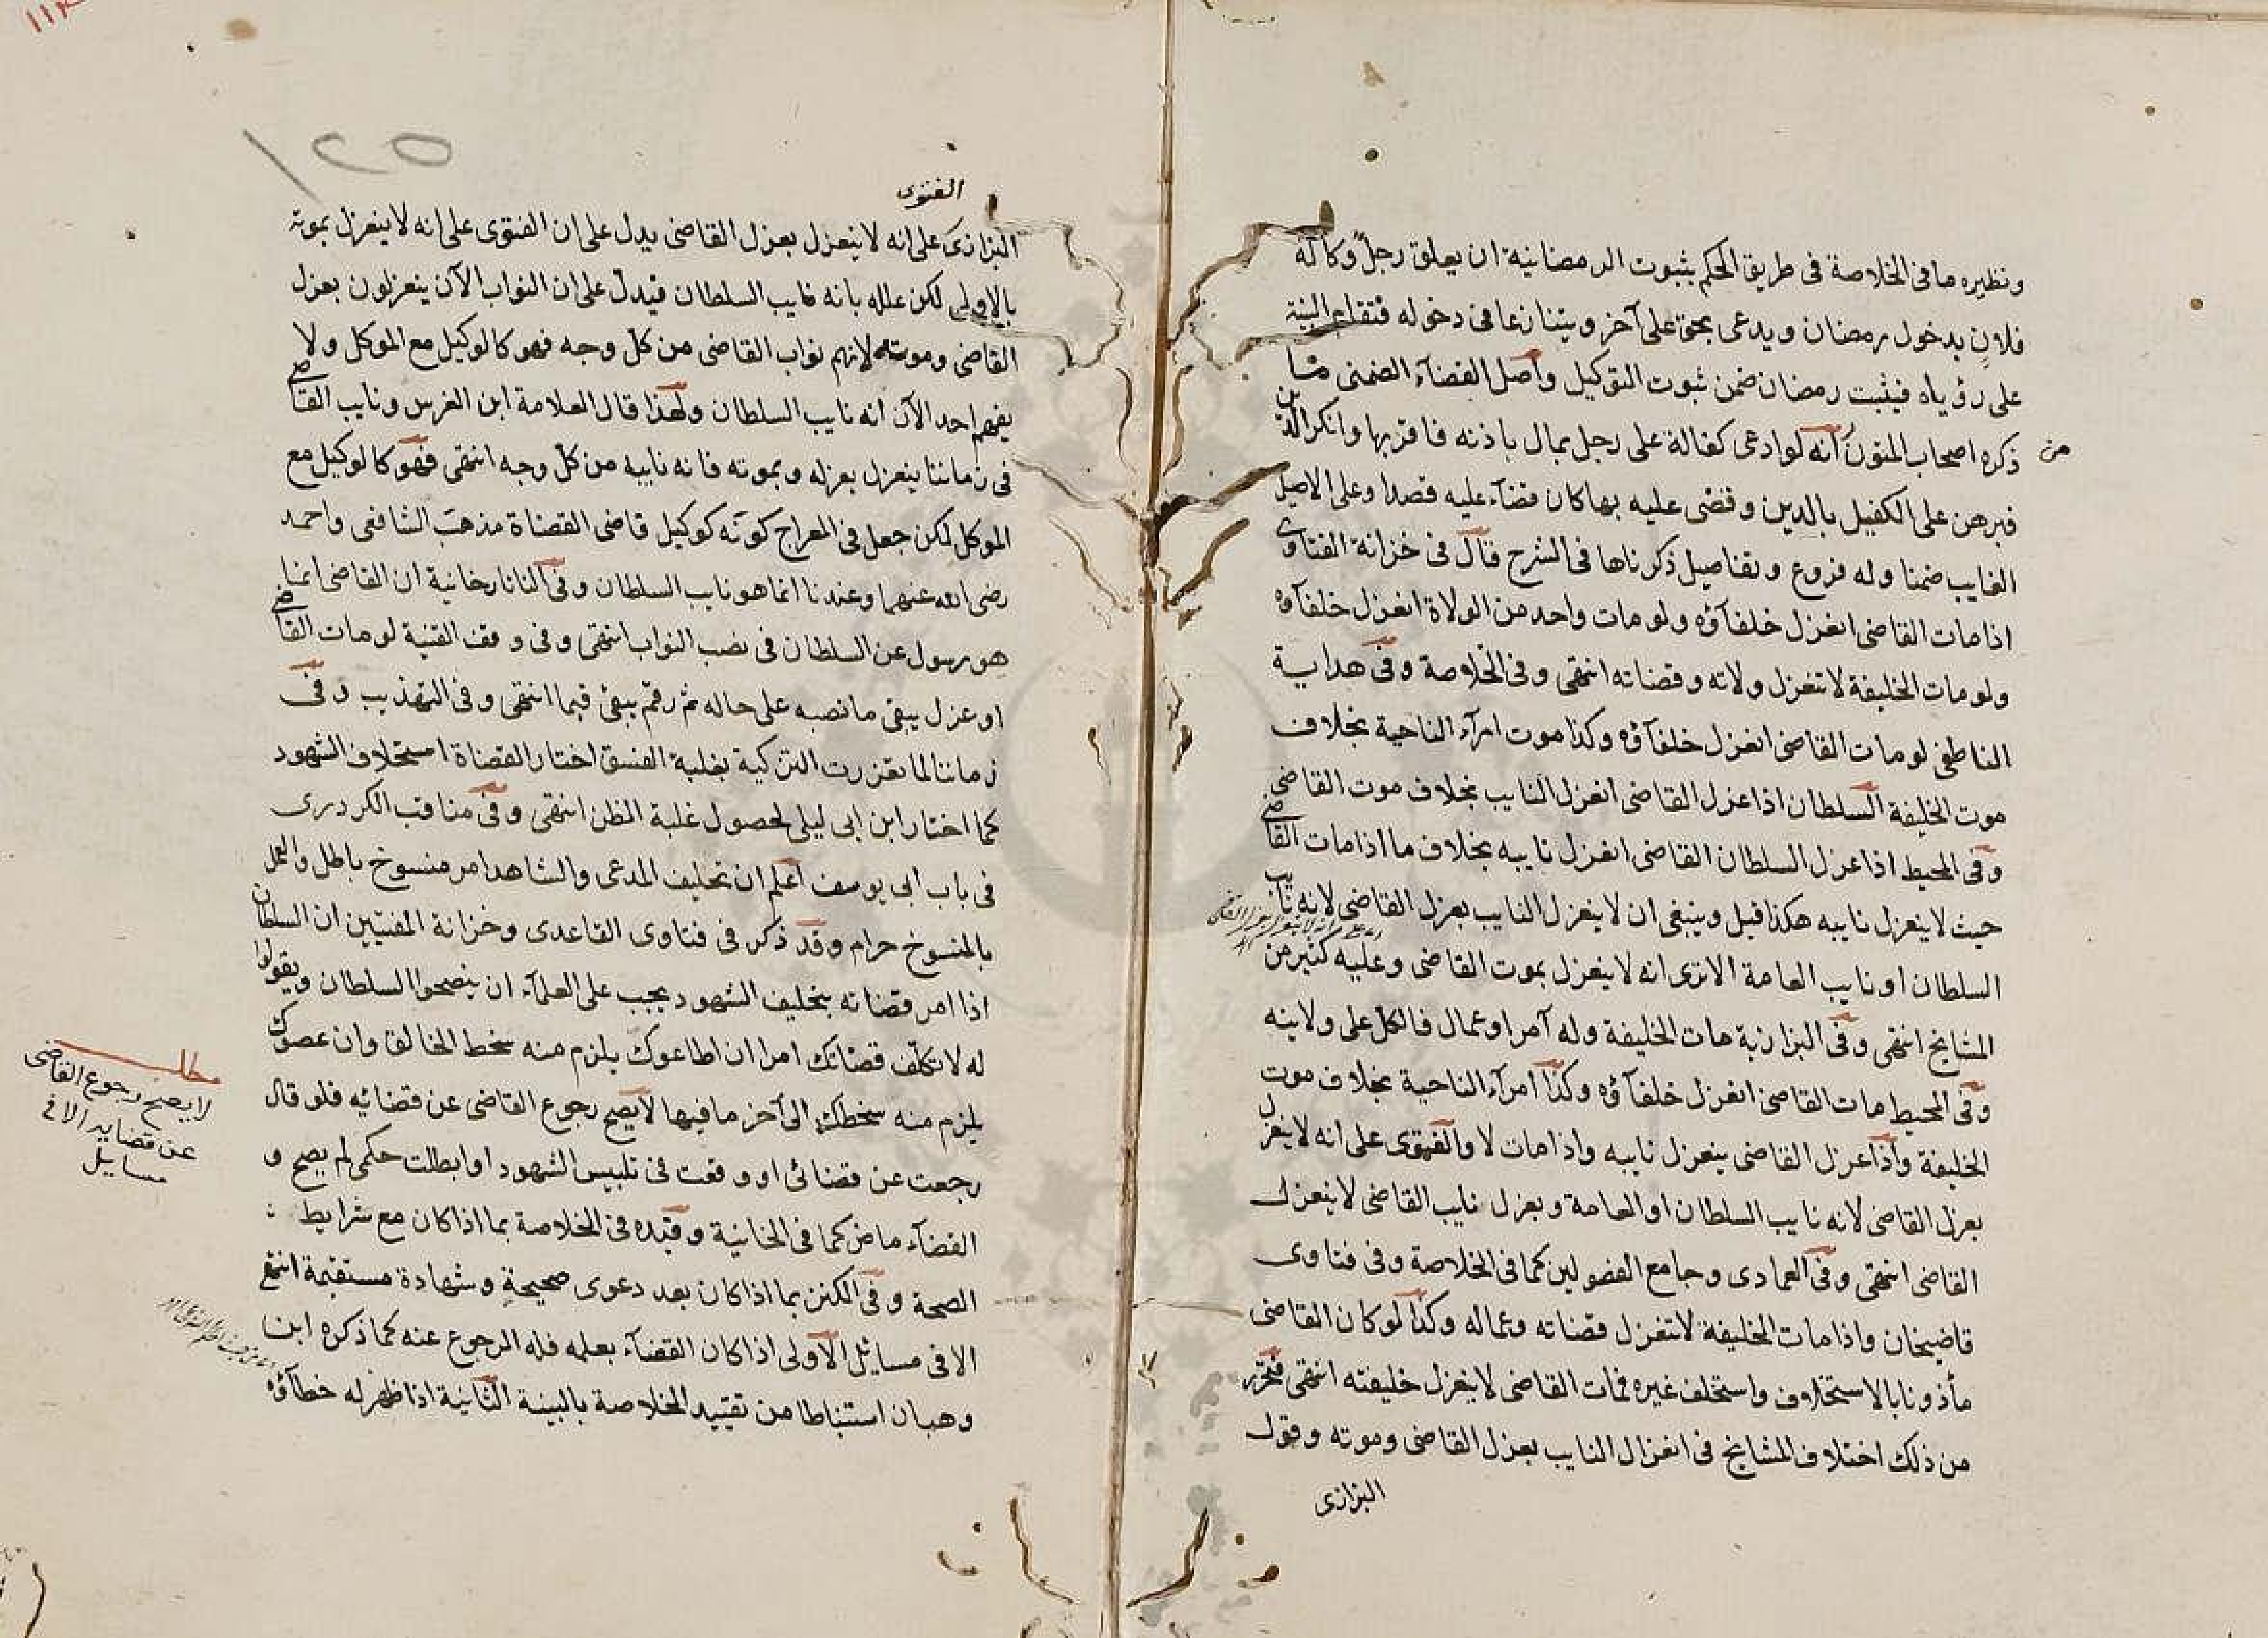 ونظيره ما فى الخلاصة فى طريق الحكم بثبوت الرمضانية ان يعلق رجل وكالة
فلان بدخول رمضان ويدعى بحق على آخر ويتنازعا فى دخوله فتقام البينة
على رؤياه فيثبت رمضان ضمن ثبوت التوكيل واصل القضآء الضمنى ما
ذكره اصحاب المتون من انه لو ادعى كفالة على رجل بمال باذنه فاقر بها وانكر الدين
فبرهن على الكفيل بالدين وقضى عليه بها كان قضآء عليه قصدا وعلى الاصيل
الغايب ضمنا وله فروع وتفاصيل ذكرناها فى الشرح قال فى خزانة الفتاوى
اذا مات القاضى انعزل خلفآؤه ولو مات واحد من الولاة انعزل خلفآؤه
ولو مات الخليفة لا تنعزل ولاته وقضاته انتهى وفى الخلاصة وفى هداية
الناطفى لو مات القاضى انعزل خلفآؤه وكذا موت امرآء الناحية بخلاف
موت الخليفة السلطان اذا عزل القاضى انعزل النايب بخلاف موت القاضى
وفى المحيط اذا عزل السلطان القاضى انعزل نايبه بخلاف ما اذا مات القاضى
حيث لا ينعزل نايبه هكذا قيل وينبغى ان لا ينعزل النايب بعزل القاضى لانه نايب
السلطان او نايب العامة الا ترى انه لا ينعزل بموت القاضى وعليه كثير من
المشايخ انتهى وفى البزازية مات الخليفة وله آمرا وعمال فالكل على ولاينه
وفى المحيط مات القاضى انعزل خلفآؤه وكذا امرآء الناحية بخلاف موت
الخليفة واذا عزل القاضى ينعزل نايبه واذا مات لا والفتوى على انه لا ينعزل
بعزل القاضى لانه نايب السلطان او العامة وبعزل نايب القاضى لا ينعزل
القاضى انتهى وفى العمادى وجامع الفصولين كما فى الخلاصة وفى فتاوى
قاضيخان واذا مات الخليفة لا تنعزل قضاته وعماله وكذا لو كان القاضى
مأذونا بالاستخلاف واستخلف غيره فمات القاضى لا ينعزل خليفته انتهى فتحرر
من ذلك اختلاف المشايخ فى انعزال النايب بعزل القاضى وموته وقول
البزازى
١٢٥
الفتوى
البزازى على انه لا ينعزل بعزل القاضى يدل على ان الفتوى على انه لا ينعزل بموته
بالاولى لكن علله بانه نايب السلطان فيدل على ان النواب الآن ينعزلون بعزل
القاضى وموته لانهم نواب القاضى من كل وجه فهو كالوكيل مع الموكل ولا
يفهم احد الآن انه نايب السلطان ولهذا قال العلامة ابن الغرس ونايب القاضى
فى زماننا ينعزل بعزله وبموته فانه نايبه من كل وجه انتهى فهو كالوكيل مع
الموكل لكن جعل فى المعراج كونه كوكيل قاضى القضاة مذهب الشافعى واحمد
رضى الله عنهما وعندنا انما هو نايب السلطان وفى التاتارخانية ان القاضى انما
هو رسول عن السلطان فى نصب النواب انتهى وفى وقف القنية لو مات القاضى
او عزل يبقى ما نصبه على حاله ثم رقم يبقى قيما انتهى وفى التهذيب وفى
زماننا لما تعذرت التزكية بغلبة الفسق اختار القضاة استحلاف الشهود
كما اختار ابن ابى ليلى لحصول غلبة الظن انتهى وفى مناقب الكردرى
فى باب ابى يوسف اعلم ان تحليف المدعى والشاهد امر منسوخ باطل والعمل
بالمنسوخ حرام وقد ذكر فى فتاوى القاعدى وخزانة المفتيين ان السلطان
اذا امر قضاته بتحليف الشهود يجب على العلمآء ان ينصحوا السلطان ويقولوا
له لا تكلف قضاتك امرا ان اطاعوك يلزم منه سخط الخالق وان عصوك
يلزم منه سخطك الى آخر ما فيها لا يصح رجوع القاضى عن قضائه فلو قال
رجعت عن قضائى او وقعت فى تلبيس الشهود او ابطلت حكمى لم يصح و
القضآء ماض كما فى الخانية وقيده فى الخلاصة بما اذا كان مع شرايط
الصحة وفى الكنز بما اذا كان بعد دعوى صحيحة وشهادة مستقيمة انتهى
الا فى مسائل الاولى اذا كان القضآء بعلمه فله الرجوع عنه كما ذكره ابن
وهبان استنباطا من تقييد الخلاصة بالبينة الثانية اذا ظهر له خطآؤه
مطلب
لا يصح رجوع القاضى
عن قضايه الا فى
مسايل